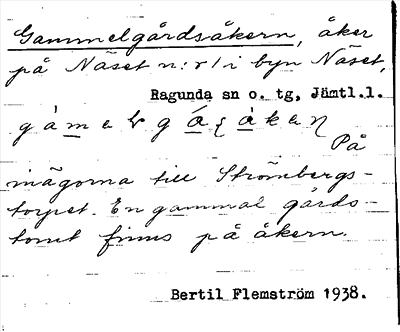 Gammelgårdsåkern, åker
på Näset n:r 1 i byn Näset,
Ragunda sn o. tg, Jämtl.l.
På
inägorna till Strömbergs-
torpet. En gammal gårds-
tomt finns på åkern.
Bertil Flemström 1938.